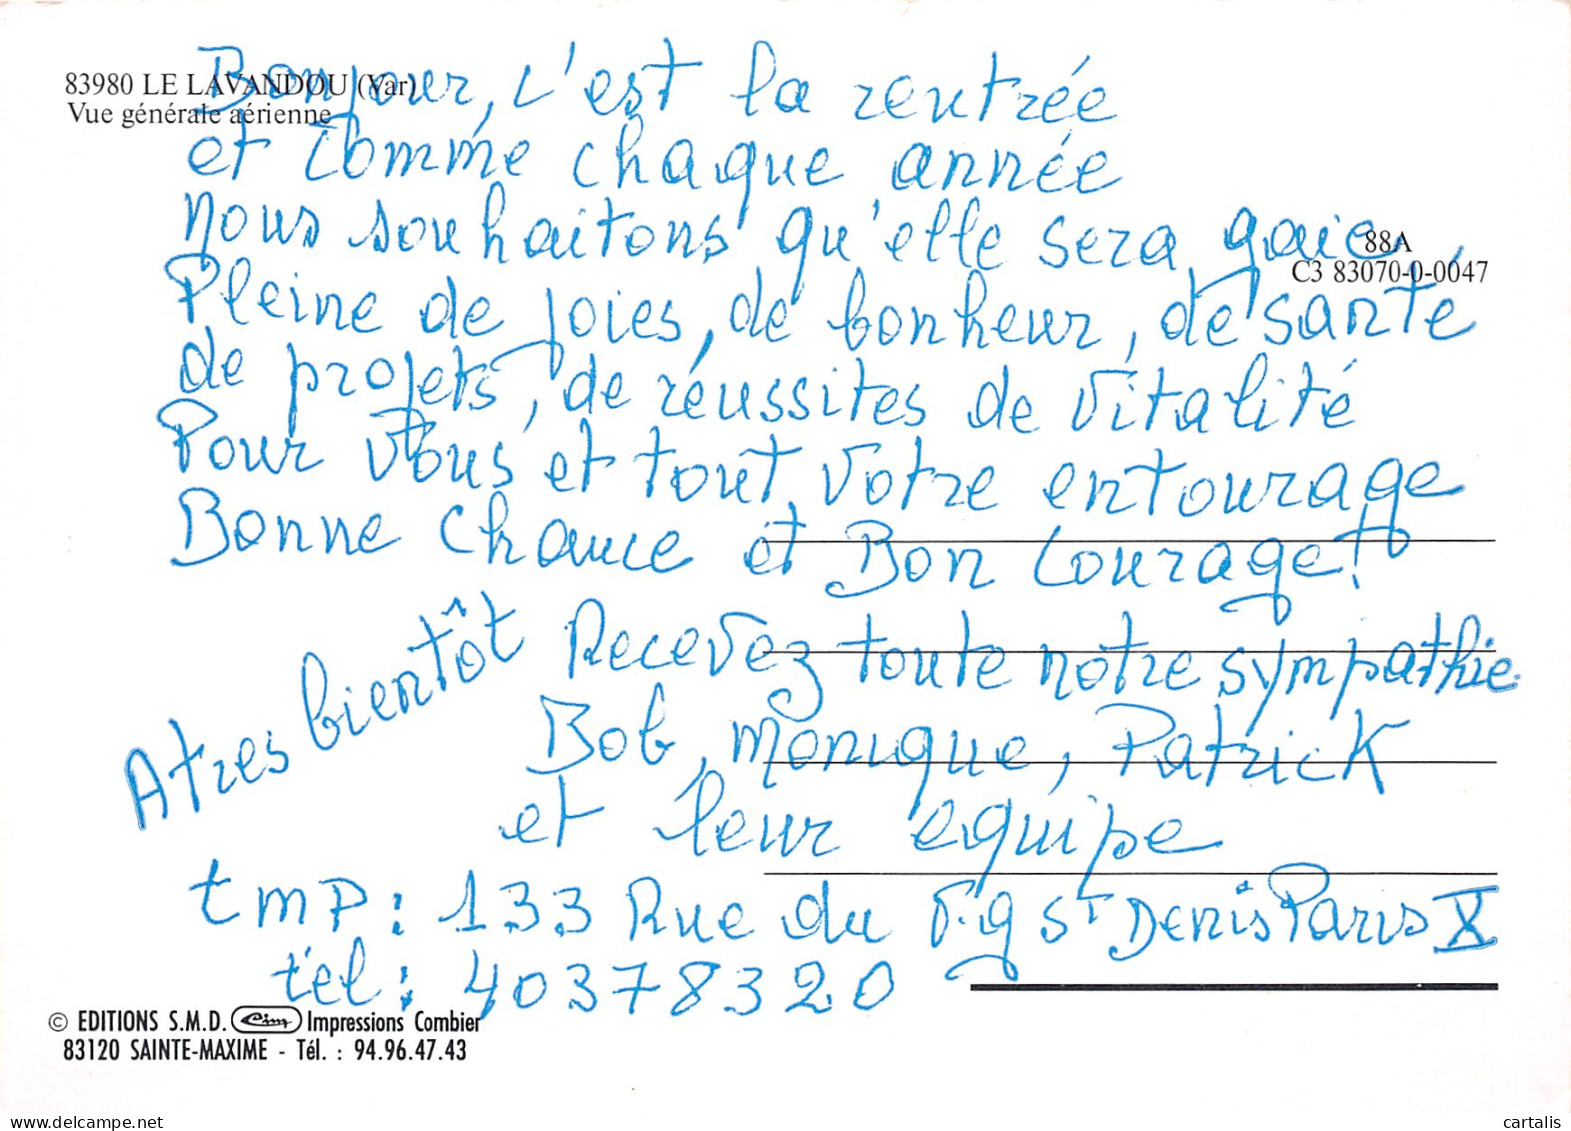 83980 LE LAVANDOU (Var)
Vue générale aérienne
88A
C3 83070-0-0047
Bonjour, c'est la rentrée
et comme chaque année
nous souhaitons qu'elle sera gaie,
Pleine de joies, de bonheur, de santé
de projets, de réussites de vitalité
Pour vous et tout votre entourage
Bonne chance et Bon Courage!
A tres bientôt
Recevez toute notre sympathie.
Bob, Monique, Patrick
et leur équipe
tmP: 133 Rue du F.g St Denis Paris X
tél: 40378320
© EDITIONS S.M.D. Cim Impressions Combier
83120 SAINTE-MAXIME - Tél. : 94.96.47.43
cartalis